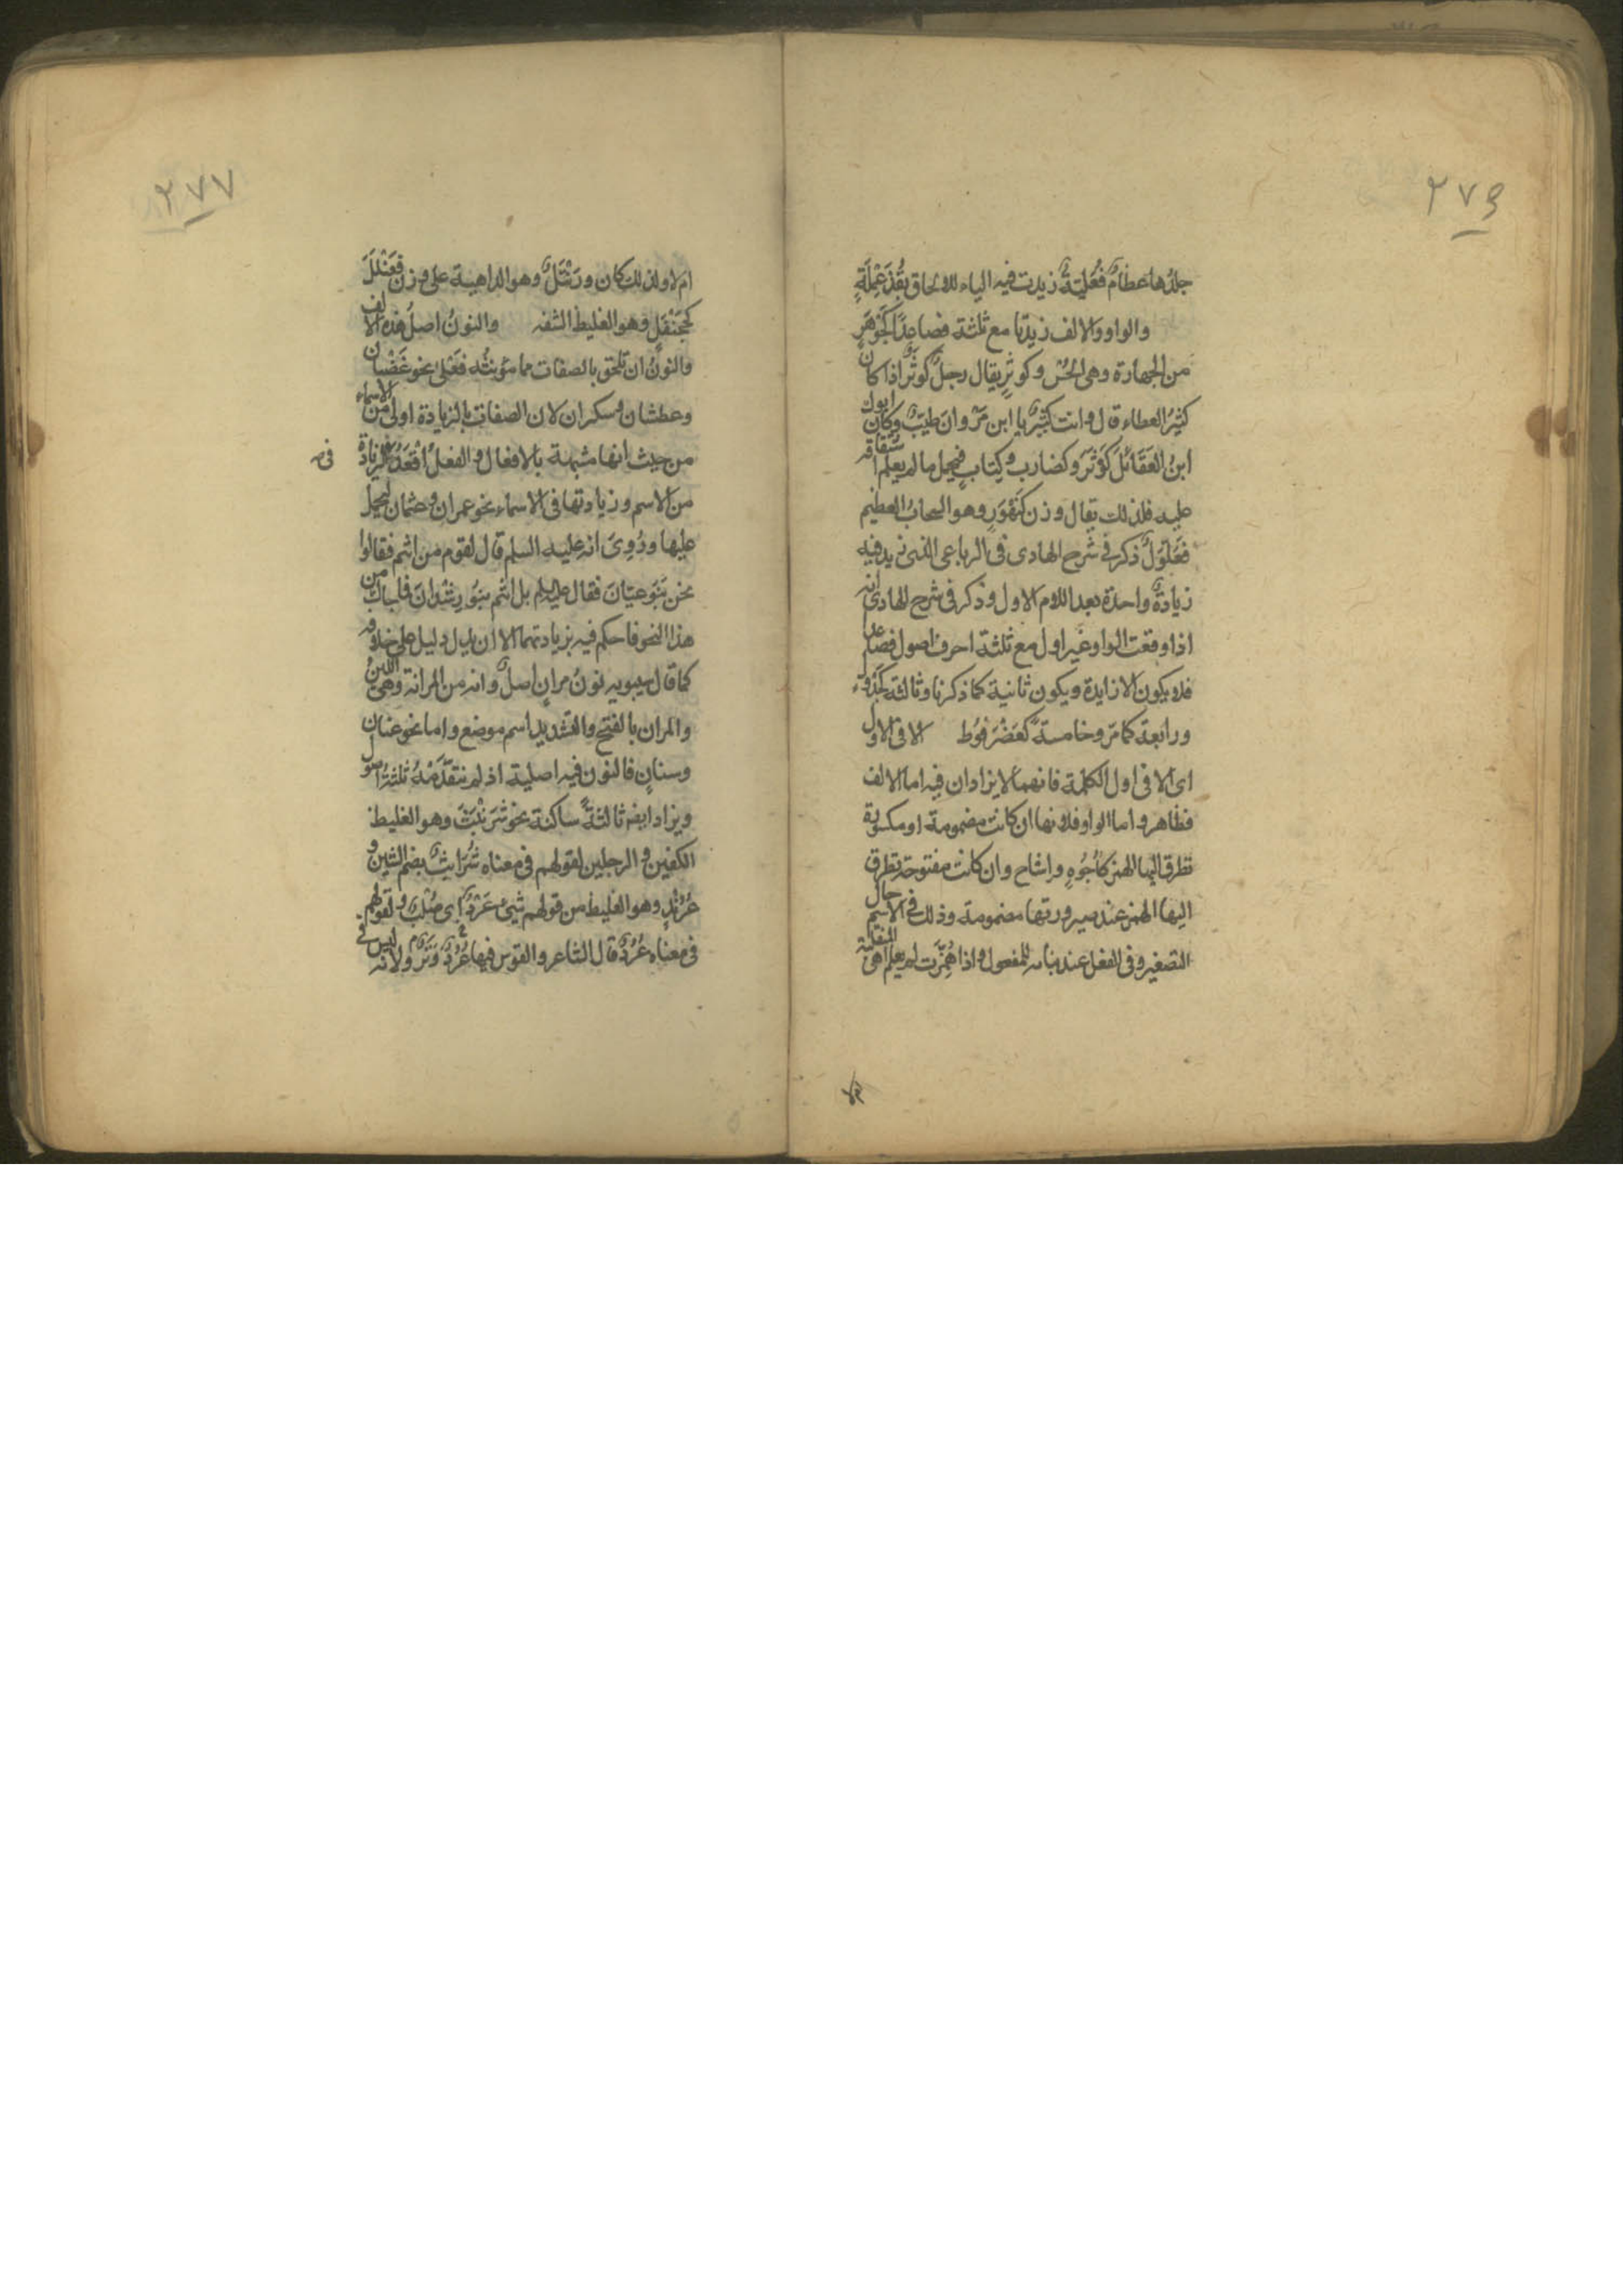 ٢٧٦
جلدها عظامٌ فُعُليَةٌ زيدت فيه الياء للالحاق بقُذَعْمِلَةٍ
والواو والالف زيدتا مع ثلثة فصاعدًا كجَوْهَرٍ
من الجهارة وهى الحُسْن وكوثرٍ يقال رجلٌ كوثَرٌ اذا كان
كثيرُ العطاء قال وانت كثيرٌ يا ابن مَرْوانَ طيّبٌ وكان ابوك
ابنُ العَقَائلِ كَوْثَرَ وكضارب وكتابٍ فيحمل ما لم يعلم اشتقاقه
عليه فلذلك يقال وزن كَنَهْوَرٍ وهو السحابُ العظيم
فَعَلْوَلٌ ذكر فى شرح الهادى فى الرباعى الذى زيد فيه
زيادةٌ واحدة بعد اللام الاول وذكر فى شرح الهادى انه
اذا وقعت الواو غير اول مع ثلثة احرف اصول فصاعدا
فلا يكون الا زايدة ويكون ثانية كما ذكرنا وثالثة
ورابعة كما مرّ وخامسةً كعَضْرَفُوُط الا فى الاول
اى الا فى اول الكلمة فانهما لا يزادان فيه اما الالف
فظاهر واما الواو فلانها ان كانت مضمومة او مكسورة
تطرق اليها الهمز كاُجُوهٍ واشاح وان كانت مفتوحة يتطرق
اليها الهمز عند صيرورتها مضمومة وذلك فى الاسم حال
التصغير وفى الفعل عند بنائه للمفعول واذا هُمِزَت لم يعلم اهى المنقلبة
٢٧٧
ام لا ولذلك كان ورَنْتَلٌ وهو الداهية على وزن فَعَنْلَلَ
كجَحَنْفَلٍ وهو الغليظ الشفه والنونُ اصل هذه الالف
والنونُ ان تلحق بالصفات مما مؤنثُه فَعْلى نحو غَضْبان
وعطشان وسكران لان الصفات بالزيادة اولى من الاسماء
من حيث انها مشبهة بالافعال والفعلُ اقْعَدُ فى الزيادة
من الاسم وزيادتها فى الاسماء نحو عمران وعثمان ليحمل
عليها ورُوِىَ انه عليه السلم قال لقوم من انتم فقالوا
نحن بَنو غيّانَ فقال عليه السلم بل انتم بنُو رِشْدانَ فلما جاءك من
هذا النحو فاحكم فيه بزيادتهما الا ان يدل دليل على خلافه
كما قال سيبويه نونُ مرانٍ اصلٌ وانه من المرانة وهى اللينُ
والمران بالفتح والتشديد اسم موضع واما نحو عنان
وسنانٍ فالنون فيه اصلية اذ لم يتقدّمْهُ ثلثةُ اصول
ويزاد ايضا ثالثةً ساكنة نحو شَرَنْبَثٍ وهو الغليظ
الكفين والرجلين لقولهم فى معناه شُرَابِثٌ بضم الشين و
عُرُنْدٍ وهو الغليظ من قولهم شيىٌ عَرْدٌ اى صُلْبٌ ولقولهم
فى معناه عُرُدٌّ قال الشاعر والقوس فيها وَتَرٌ عُرُدٌّ ولانه ليس فى